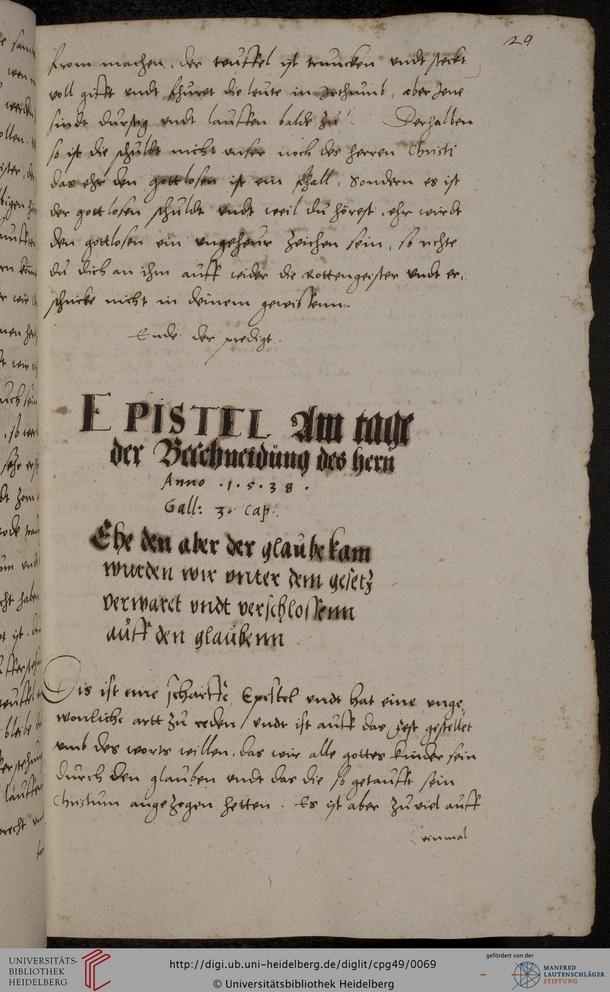 29
from machen, der teuffel ist truncken undt steckt
voll gifft undt schuret die leute in irthumb, aber jene
sindt durstig undt lauffen balde zu. Derhalben
so ist die schuldt nicht unser noch des herren Christi
das ehr den gottlosen ist ein fhall, sondern es ist
der gottlosen schuldt undt weil du hörest, ehr wirdt
den gottlosen ein ungeheur zeichen sein, so richte
du dich an ihm auff wider die Rottengeister undt er,
schricke nicht in deinem gewissenn.
Ende der predigt.
EPISTEL Am tage
der Beschneidüng des hern
Anno .1.5.38.
Gall: 3. cap:
Ehe den aber der glaübe kam
wurden wir vnter dem gesetz
verwaret vndt verschlossenn
aüff den glaübenn
Dis ist eine scharffe Epistel undt hat eine unge,
wonliche artt zu reden / undt ist auff das fest gestellet
umb des worts willen, das wir alle gottes kinder sein
durch den glauben undt das die so getaufft sein
Christum angezogen hetten. Es ist aber zu viel auff
einmal
UNIVERSITÄTS-
BIBLIOTHEK
HEIDELBERG
http://digi.ub.uni-heidelberg.de/diglit/cpg49/0069
© Universitätsbibliothek Heidelberg
gefördert von der
MANFRED
LAUTENSCHLÄGER
STIFTUNG